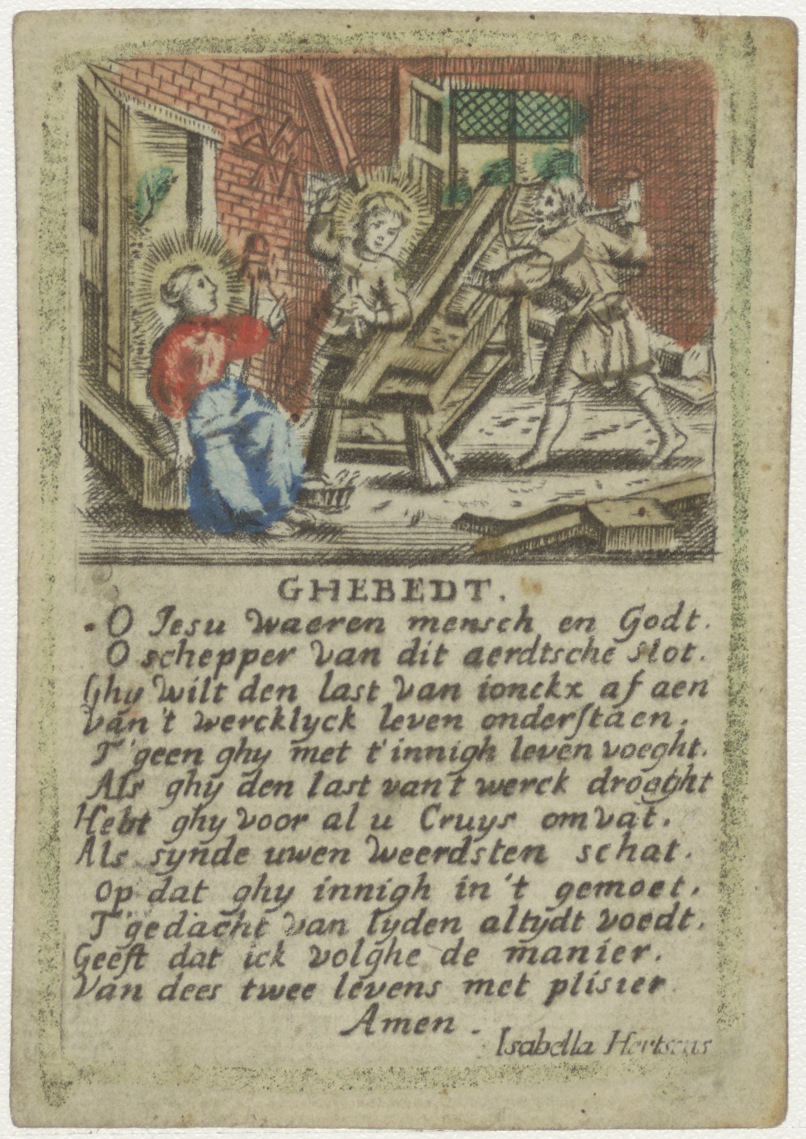 GHEBEDT.
O Iesu waeren mensch en Godt.
O schepper van dit aerdtsche slot.
Ghy wilt den last van ionckx af aen
Van't wercklyck leven onderstaen.
T'geen ghy met t'innigh leven voeght.
Als ghy den last van't werck droeght
Hebt ghy voor al u Cruys omvat.
Als synde uwen weerdsten schat.
Op dat ghy innigh in't gemoet.
T'gedacht van lyden altydt voedt.
Geeft dat ick volghe de manier.
Van dees twee levens met plisier
Amen.
Isabella Hertsens